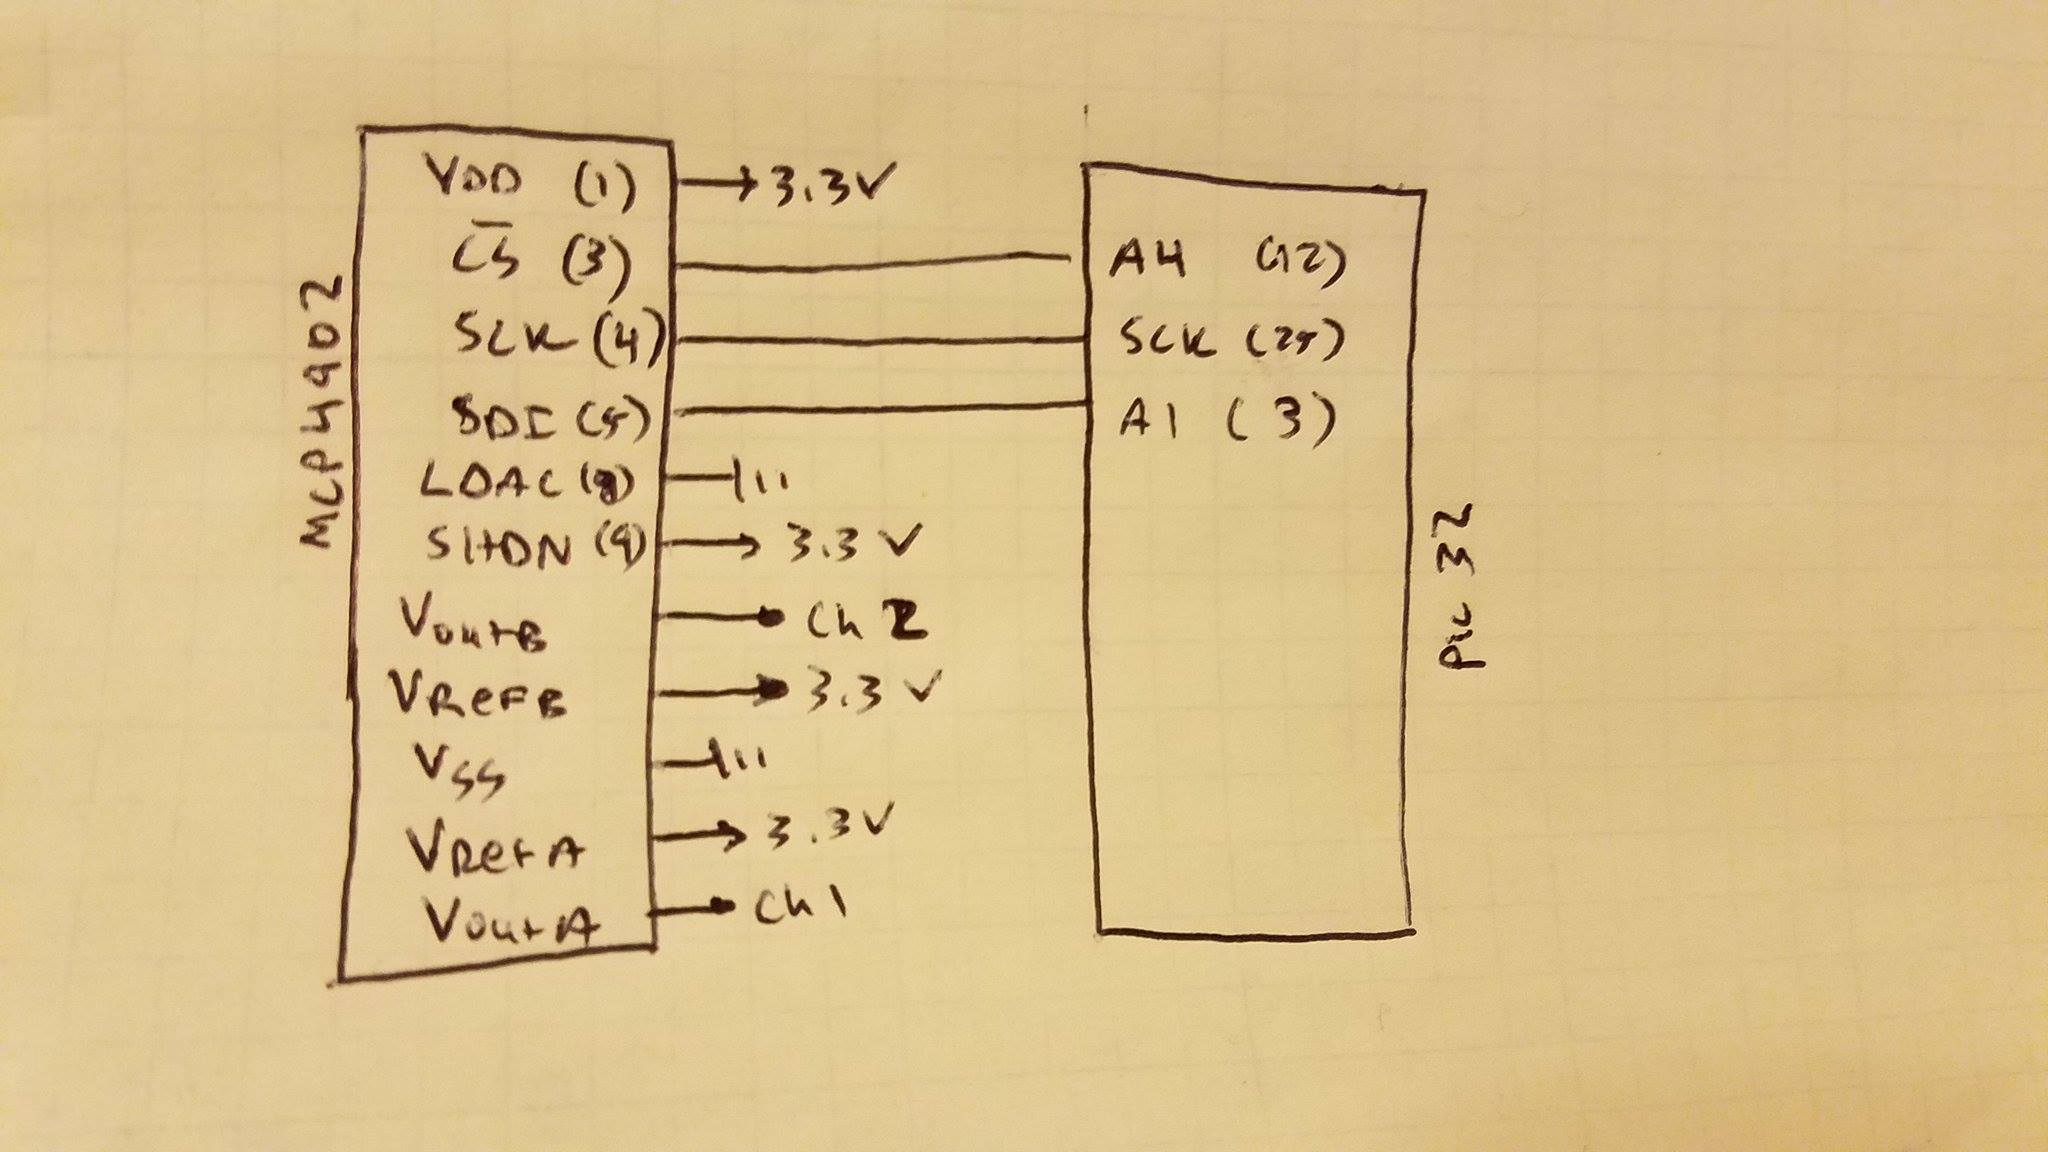 MCP4902
VDD (1) → 3.3V
CS (3)
SCK (4)
SDI (5)
LDAC (8)
SHDN (9) → 3.3V
VoutB Ch 2
VRefB 3.3V
VSS
VRefA → 3.3V
VoutA Ch 1
A4 (12)
SCK (25)
A1 (3)
Pic 32